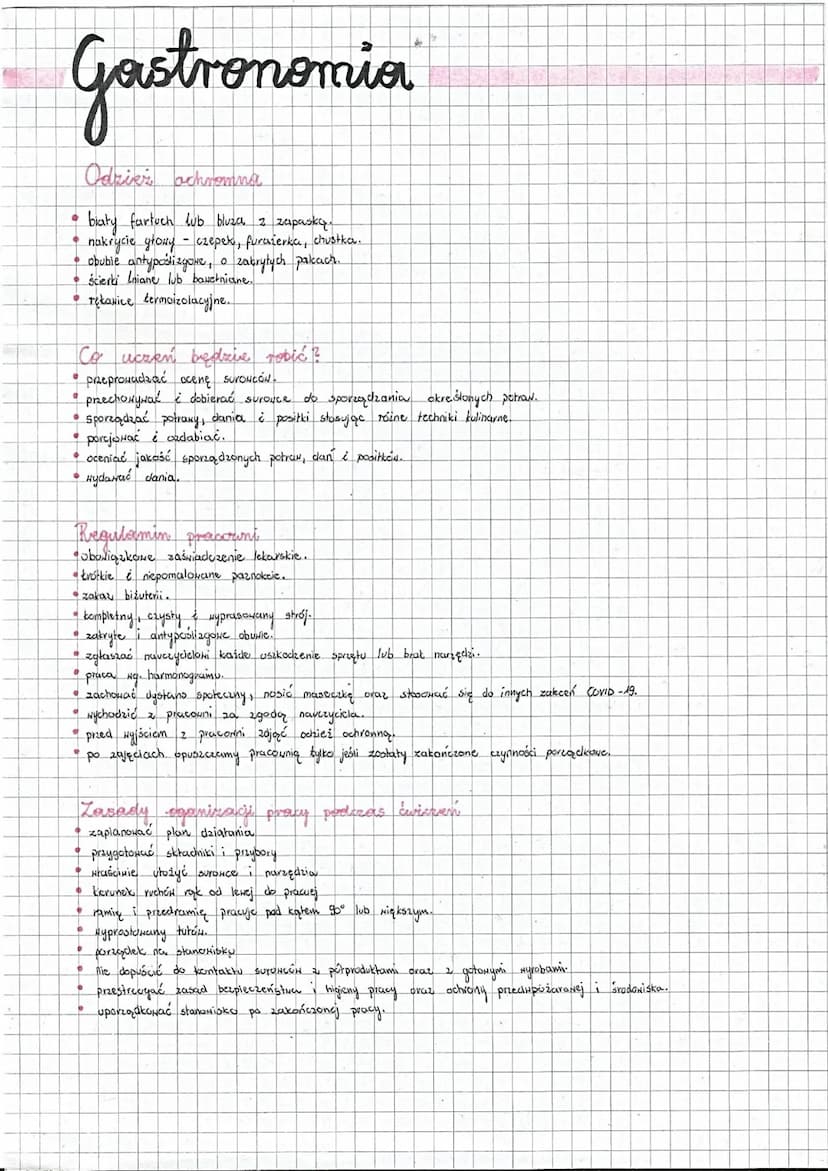 Gastronomia
Odzież ochronna
• biały fartuch lub bluza z zapaską.
• nakrycie głowy - czepek, furażerka, chustka.
• obuwie antypoślizgowe, o zakrytych palcach.
• ścierki lniane lub bawełniane.
• rękawice termoizolacyjne.
Co uczeń będzie robić?
• przeprowadzać ocenę surowców.
• przechowywać i dobierać surowce do sporządzania określonych potraw.
• sporządzać potrawy, dania i posiłki stosując różne techniki kulinarne.
• porcjować i ozdabiać.
• oceniać jakość sporządzonych potraw, dań i posiłków.
• wydawać dania.
Regulamin pracowni
• obowiązkowe zaświadczenie lekarskie.
• krótkie i niepomalowane paznokcie.
• zakaz biżuterii.
• kompletny, czysty i wyprasowany strój.
• zakryte i antypoślizgowe obuwie.
• zgłaszać nauczycielowi każde uszkodzenie sprzętu lub brak narzędzi.
• praca wg. harmonogramu.
• zachować dystans społeczny, nosić maseczkę oraz stosować się do innych zaleceń COVID-19.
• wychodzić z pracowni za zgodą nauczyciela.
• przed wyjściem z pracowni zdjąć odzież ochronną.
• po zajęciach opuszczamy pracownię tylko jeśli zostały zakończone czynności porządkowe.
Zasady oganizacji pracy podczas ćwiczeń
• zaplanować plan działania
• przygotować składniki i przybory
• właściwie ułożyć surowce i narzędzia
• kierunek ruchów rąk od lewej do prawej
• ramię i przedramię pracuje pod kątem 90° lub większym.
• wyprostowany tułów.
• porządek na stanowisku
• nie dopuścić do kontaktu surowców z półproduktami oraz z gotowymi wyrobami.
• przestrzegać zasad bezpieczeństwa i higieny pracy oraz ochrony przeciwpożarowej i środowiska.
• uporządkować stanowisko po zakończonej pracy.